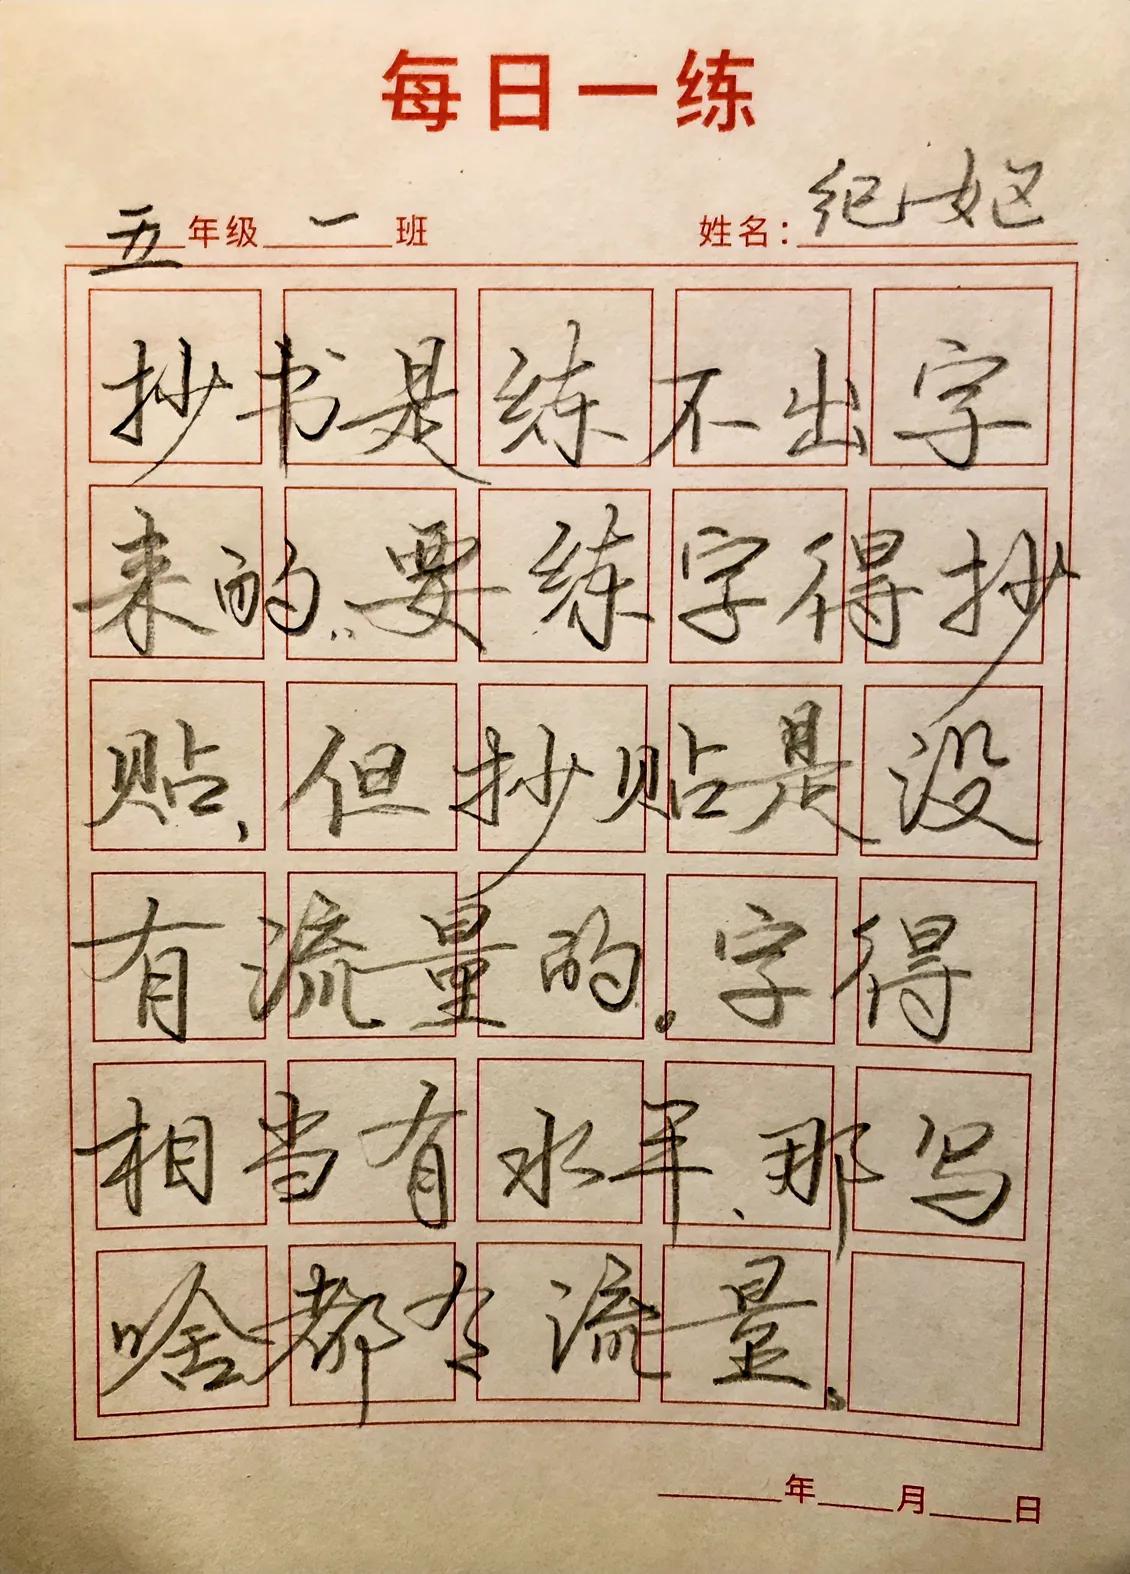 每日一练
五年级一班 姓名：纪妪
抄书是练不出字
来的,要练字得抄
贴,但抄贴是没
有流量的。字得
相当有水平,那写
啥都有流量。
年 月 日